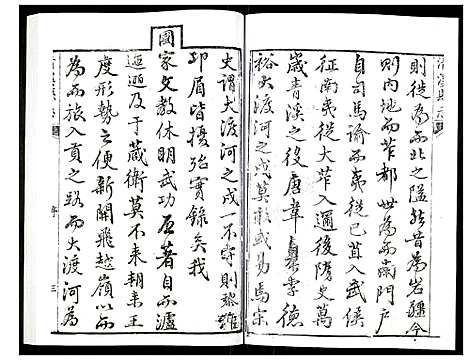 則從為西北之隘
昔為岩疆今
則內地而莋都世為西南門戶
自司馬諭西夷從巴苴入武侯
征南夷從大莋入邇後隋史萬
歲青溪之役唐韋皋李德
裕大渡河之戍莫敢或易焉宋
史謂大渡河之戍一不守則黎雅
邛眉皆擾殆實錄矣我
國家文教休明武功厎著自西瀘
迤邐及于藏衛莫不來朝來王
度形勢之便新開飛越嶺以
為西旅入貢之路而大渡河為
序
三